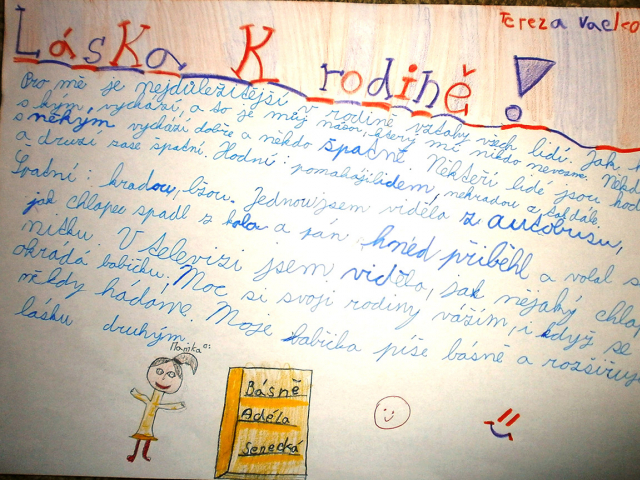 Tereza Vaclo
Láska K rodině!
Pro mě je nejdůležitější v rodině vztahy všech lidí. Jak
s kým vychází, a to je můj názor, který mi nikdo nevezme. Někdo
s někým vychází dobře a někdo špatně. Někteří lidé jsou hod
a druzí zase špatní. Hodní: pomahají lidem, nekradou a
Špatní: kradou, lžou. Jednou jsem viděla z autobusu,
jak chlapec spadl z kola a pán hned přiběhl a volal
V televizi jsem viděla, jak nějaký chlap
okrádá babičku. Moc si svojí rodiny vážím, i když se
někdy hádáme. Moje babička píše básně a rozšiřuje
lásku druhým.
Mamka
Básně
Adéla
Serecká